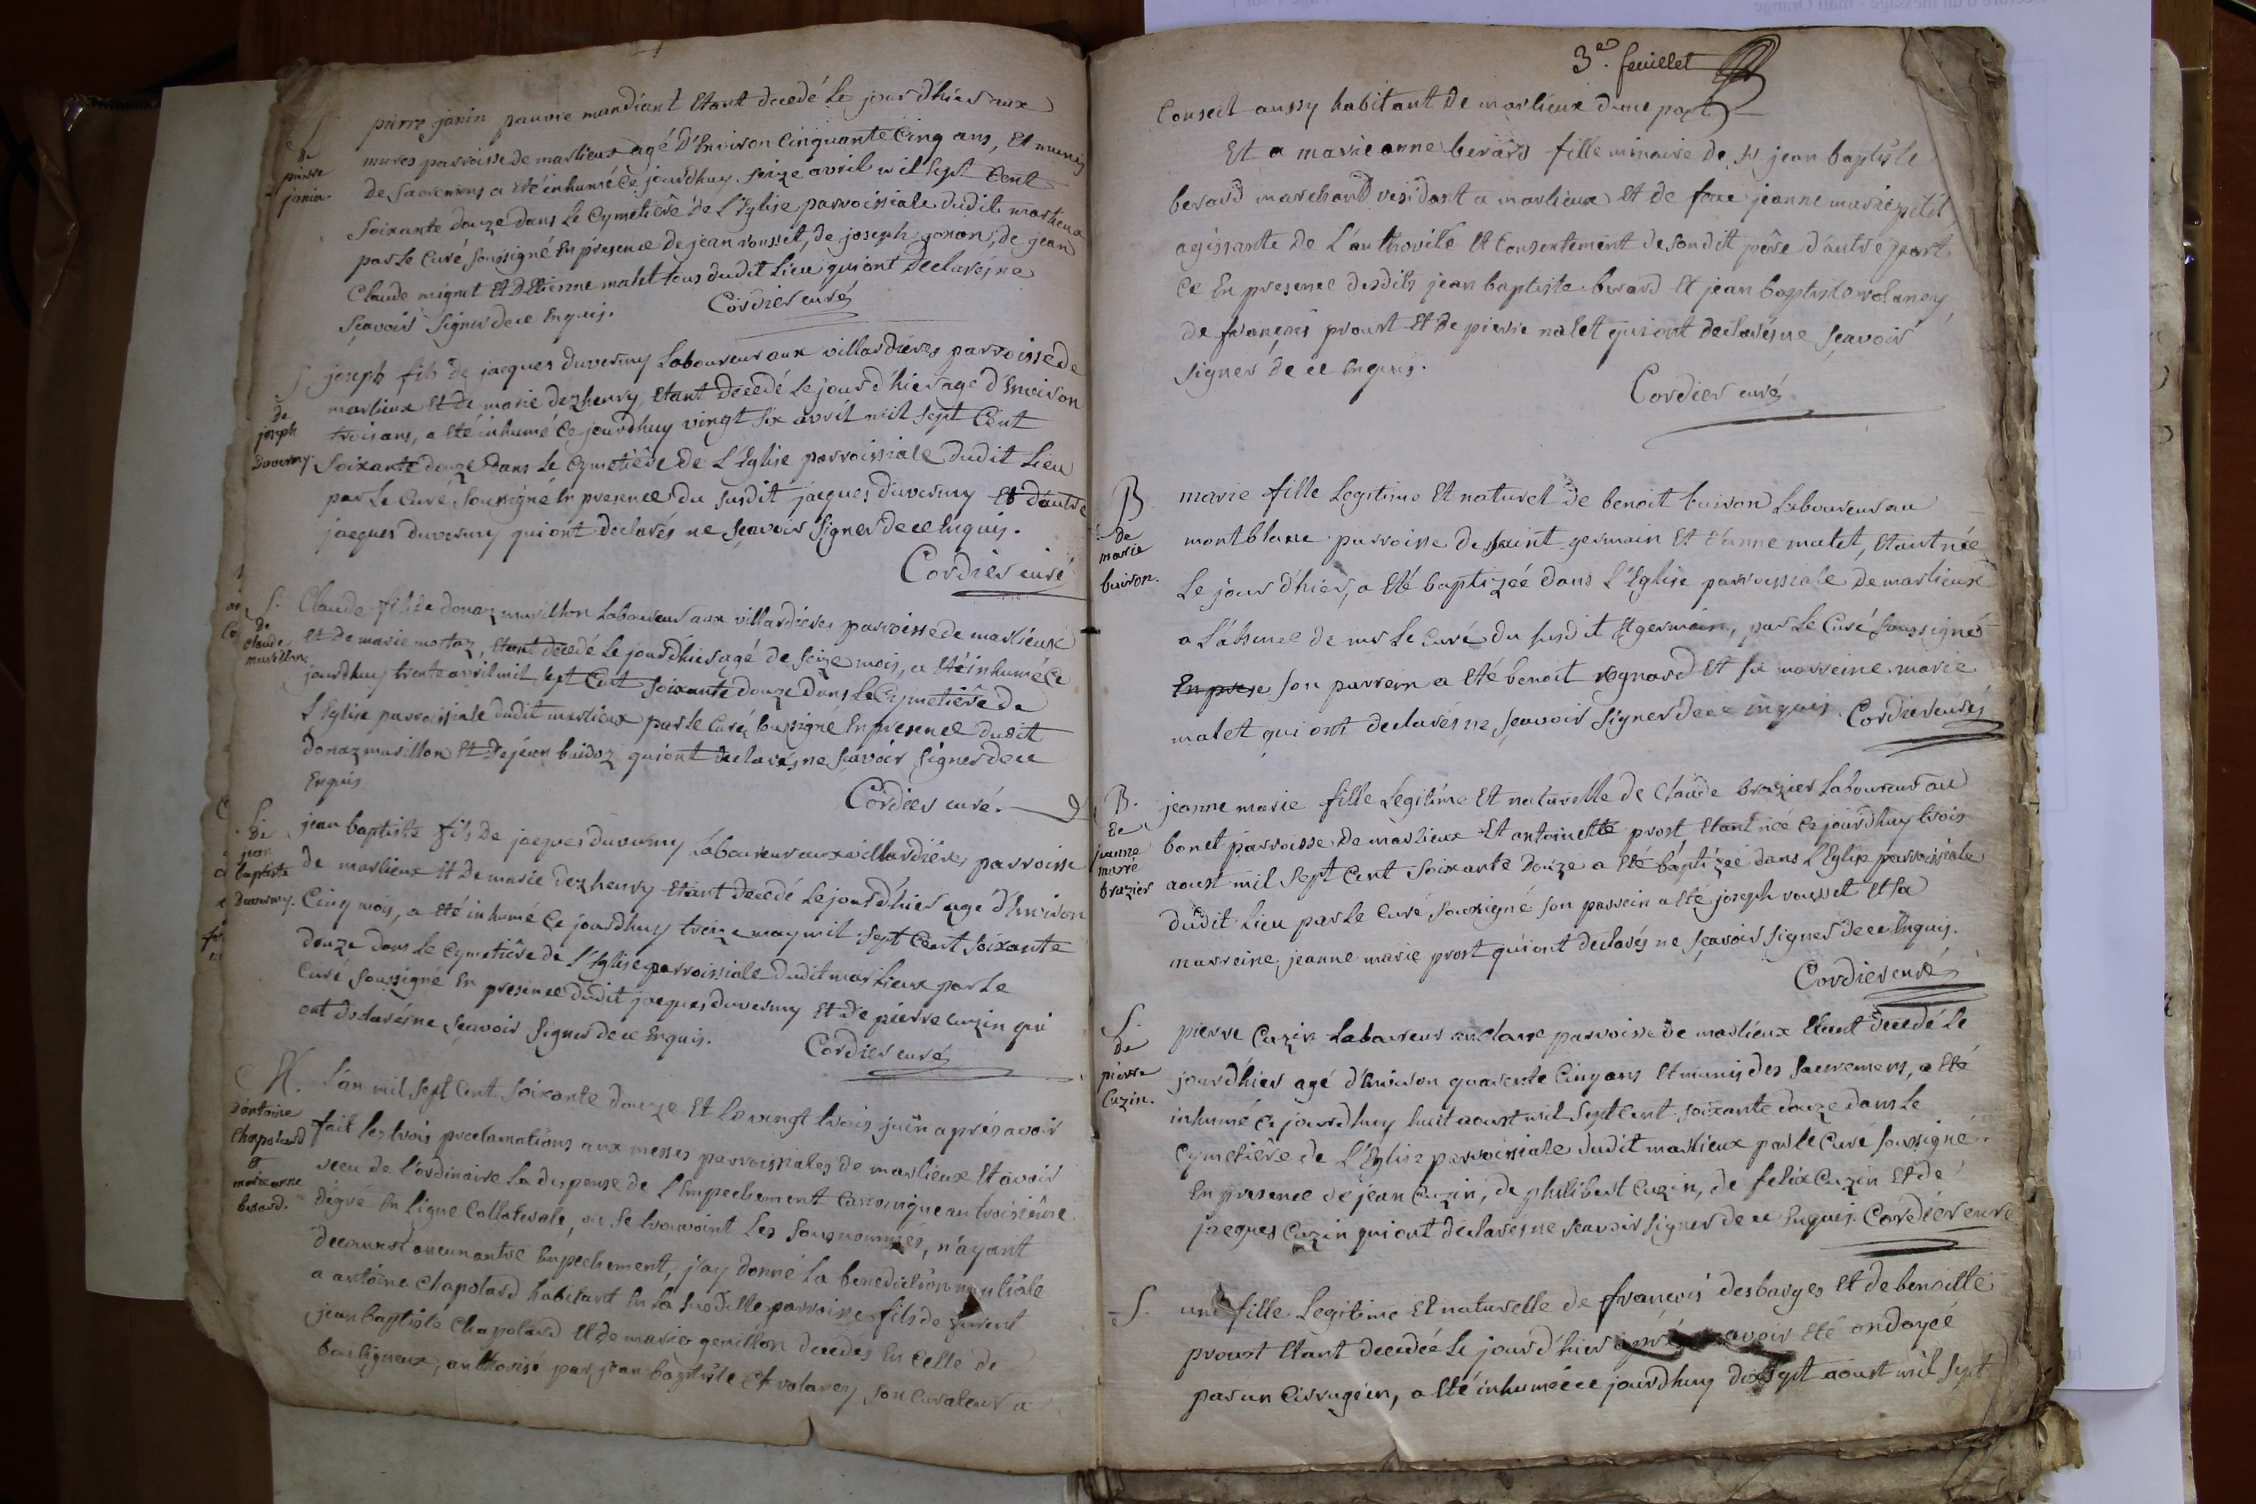 S.
de
pierre
janin.
pierre janin pauvre mandiant Etant decedé le jour d'hier aux
mures parroisse de marlieux agé D'Environ Cinquante Cinq ans, Et munis
de Sacremens a été inhumé Ce jourdhuy seize avril mil sept Cent
Soixante douze dans le Cymetiêre de L'Eglise parroissiale dudit marlieux
par Le Curé Soussigné En presence de jean rousset, de joseph gonon, de jean
Claude mignet Et D'Etienne malet tous dudit Lieu qui ont Declarés ne
Sçavoir Signer de ce Enquis. Cordier curé
S
de
joseph
Duverny.
joseph fils de jacques duverny Laboureur aux villardieres parroisse de
marlieux Et de marie dezhenry, Etant Decedé le jour d'hier agé d'Environ
trois ans, a Eté inhumé Ce jourdhuy vingt Six avril mil sept Cent
Soixante douze dans Le Cymetiêre de L'Eglise parroissiale dudit Lieu
par Le Curé Soussigné En presence du susdit jacques duverny Et d'autre
jacques duverny qui ont declarés ne sçavoir Signer de ce Enquis.
Cordier curé
S.
de
Claude
murillon.
Claude fils de donaz murillon Laboureur aux villardieres parroisse de marlieux
Et de marie mortaz, Etant decedé Le jour d'hier agé de seize mois, a Eté inhumé Ce
jourdhuy trente avril mil sept Cent soixante douze dans Le Cymetiêre de
L'Eglise parroissiale dudit marlieux par Le Curé Soussigné En presence dudit
donaz murillon Et De jean buidoz qui ont declarés ne sçavoir Signer de ce
Enquis
Cordier curé.
S.
de
jean
baptiste
duverny.
jean baptiste fils De jacques duverny Laboureur aux villardiéres parroisse
de marlieux Et De marie dezhenry Etant decedé Le jour d'hier agé d'Environ
Cinq mois, a Eté inhumé Ce jourdhuy treize may mil sept Cent soixante
douze dans Le Cymetiêre de L'Eglise parroissiale dudit marlieux par Le
Curé Soussigné En presence dudit jacques duverny Et de pierre cuzin qui
ont declarés ne sçavoir Signer de ce Enquis. Cordier curé
M.
D'antoine
Chapolard
&
marie anne
berard.
L'an mil sept Cent Soixante douze Et Le vingt trois juin aprés avoir
fait les trois proclamations aux messes parroissiales de marlieux Et avoir
receu de l'ordinaire La dispense de L'Empechement Canonique au troisiême
dégré En Ligne Collaterale, ou se trouvoint Les Sousnommés, n'ayant
decouvert aucun autre Empechement, j'ay Donné La benediction nuptiale
a antoine Chapolard habitant En La Susditte parroisse fils de
jean baptiste Chapolard Et de marie genillon decedés En Celle de
bouligneux, authorisé par jean baptiste volaney son curateur a
3e. feuillet
Conseil aussy habitant de marlieux d'une part
Et a marie anne berard fille mineure de Sr jean baptiste
berard marchand residant a marlieux Et de feue jeanne marie petit
agissante de L'authorité Et Consentement de son dit père d'autre part
Ce En presence desdits jean baptiste berard Et jean baptiste volaney,
de françois proust Et De pierre nalet qui ont declarés ne sçavoir
signer de ce Enquis.
Cordier curé.
B
de
marie
buison.
marie fille Legitime Et naturel de benoit buison Laboureur au
montblanc parroisse de saint germain Et d'anne malet, Etant née
Le jour d'hier, a Eté baptizéé dans L'Eglise parroissiale de marlieux
a L'absence de mr Le curé du susdit St germain, par Le Curé Soussigné
En prese son parrein a Eté benoit regnard Et sa marreine marie
malet qui ont declarés ne sçavoir Signer de ce Enquis. Cordier curé
B.
de
jeanne
marie
brazier
jeanne marie fille Légitime Et naturelle de Claude brazier Laboureur au
bonet parroisse de marlieux Et antoinette prost Etant née Ce jourdhuy trois
aoust mil Sept Cent Soixante Douze a Eté baptizéé dans L'Eglise parroissiale
dudit Lieu par Le Curé Soussigné son parrein a Eté joseph rousset Et sa
marreine jeanne marie prost qui ont declarés ne sçavoir signer de ce Enquis.
Cordier curé
S.
de
pierre
Cuzin.
pierre Cuzin Laboureur parroisse de marlieux Etant decedé Le
jour d'hier agé d'Environ quarente Cinq ans Et munis des Sacremens, a Eté
inhumé Ce jourdhuy huit aoust mil Sept Cent soixante douze dans Le
Cymetiêre de L'Eglise parroissiale dudit marlieux par Le Curé Soussigné
En presence de jean Cuzin, de philibert Cuzin, de felix Cuzin Et de
jacques Cuzin qui ont declarés ne sçavoir signer de ce Enquis. Cordier curé
S.
une fille Legitime Et naturelle de françois desbarges Et de benoitte
proust Etant decedéé Le jour d'hier aprés avoir Eté ondoyéé
par un Cirrugien, a Eté inhuméé Ce jourdhuy dix Sept aoust mil Sept